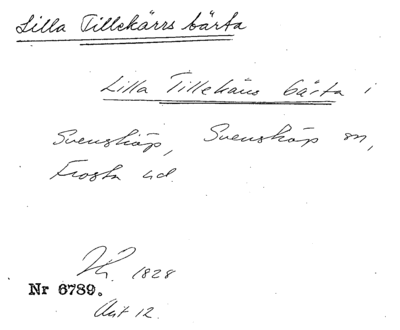 Lilla Tillekärrs bärta
Lilla Tillekärrs bärta i
Svensköp, Svensköp sn,
Frosta hd.
1828
Nr 6789.
Akt 12.